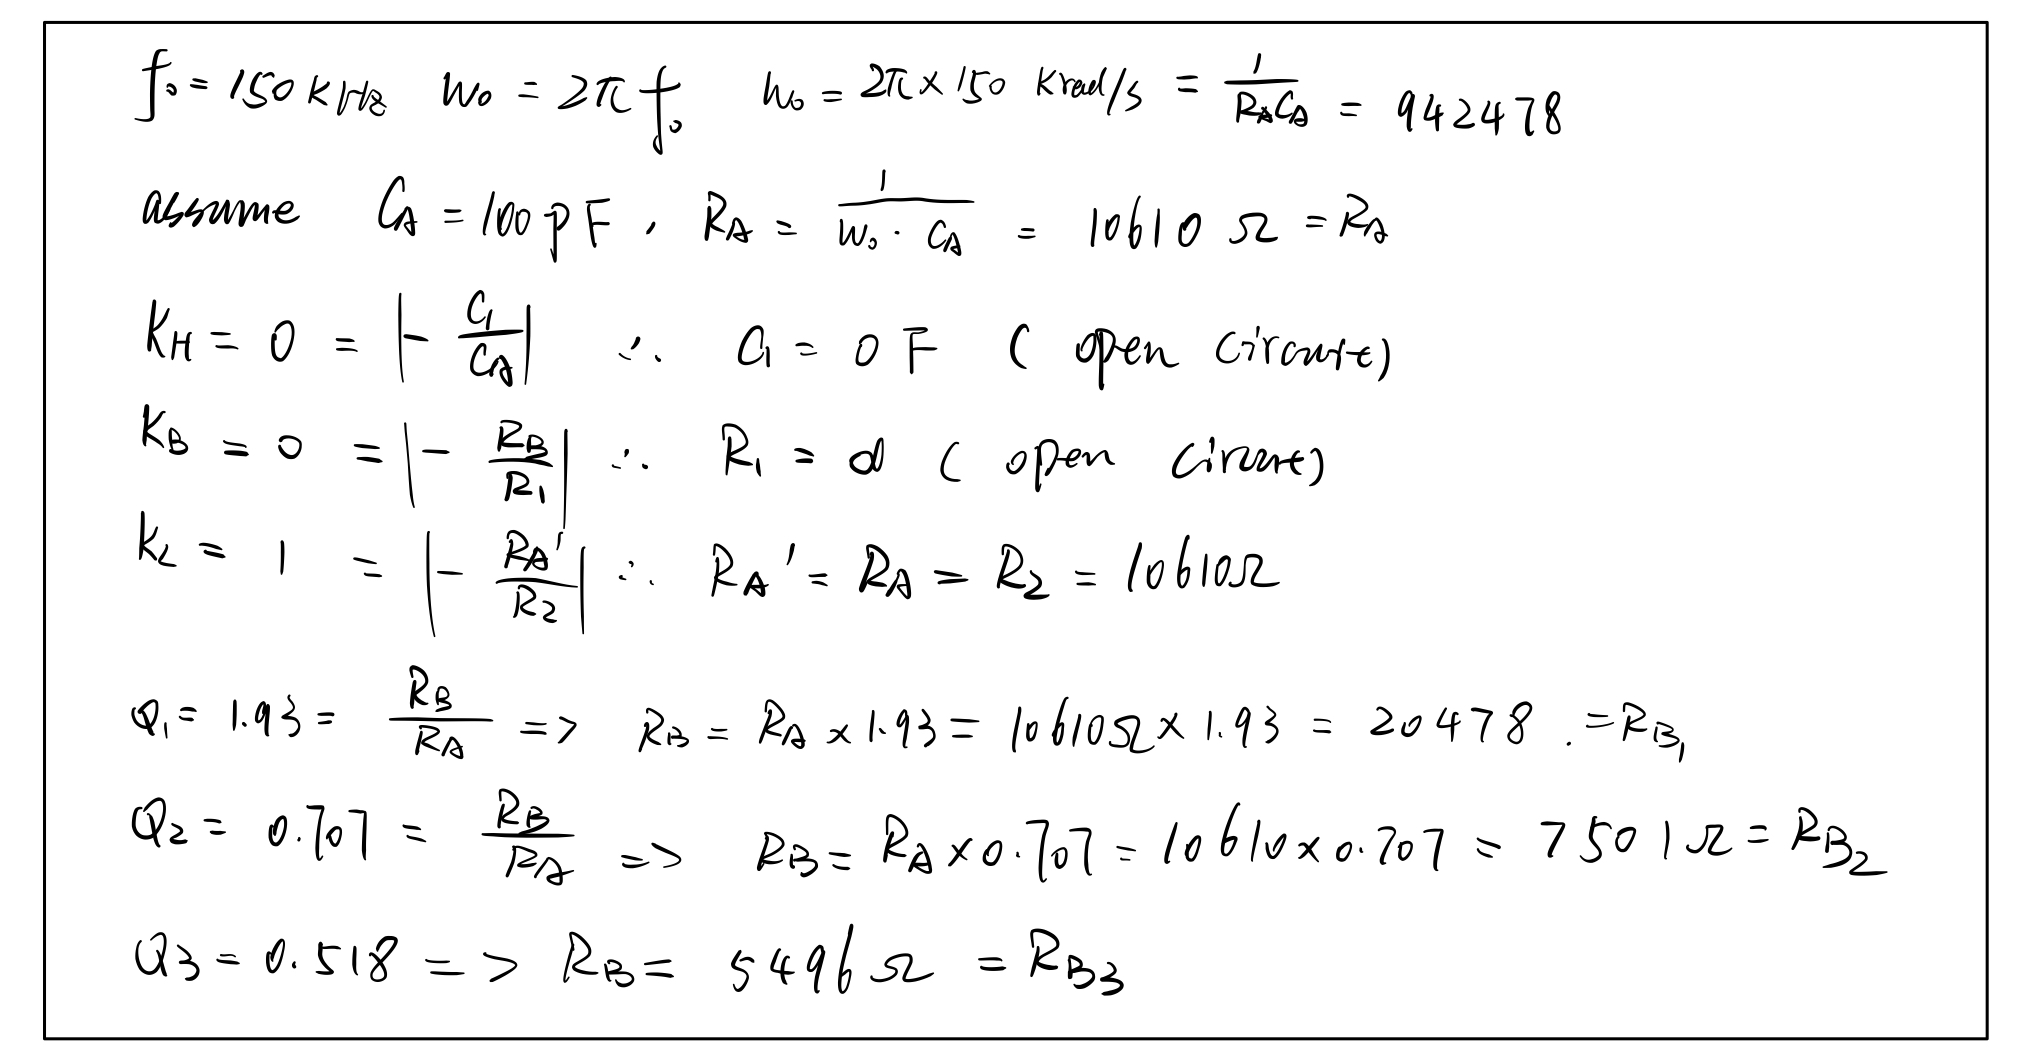 f₀ = 150 kHz   w₀ = 2π f₀   w₀ = 2π × 150 krad/s = 1/(R_A C_A) = 942478
assume C_A = 100 pF, R_A = 1/(w₀ · C_A) = 10610 Ω = R_A
K_H = 0 = |- C₁/C_A| ∴ C₁ = 0 F (open circuit)
K_B = 0 = |- R_B/R₁| ∴ R₁ = ∞ (open circuit)
K_L = 1 = |- R_A'/R₂| ∴ R_A' = R_A = R₂ = 10610Ω
Q₁ = 1.93 = R_B/R_A => R_B = R_A × 1.93 = 10610Ω × 1.93 = 20478 . = R_B₁
Q₂ = 0.707 = R_B/R_A => R_B = R_A × 0.707 = 10610 × 0.707 = 7501Ω = R_B₂
Q₃ = 0.518 => R_B = 5496Ω = R_B₃